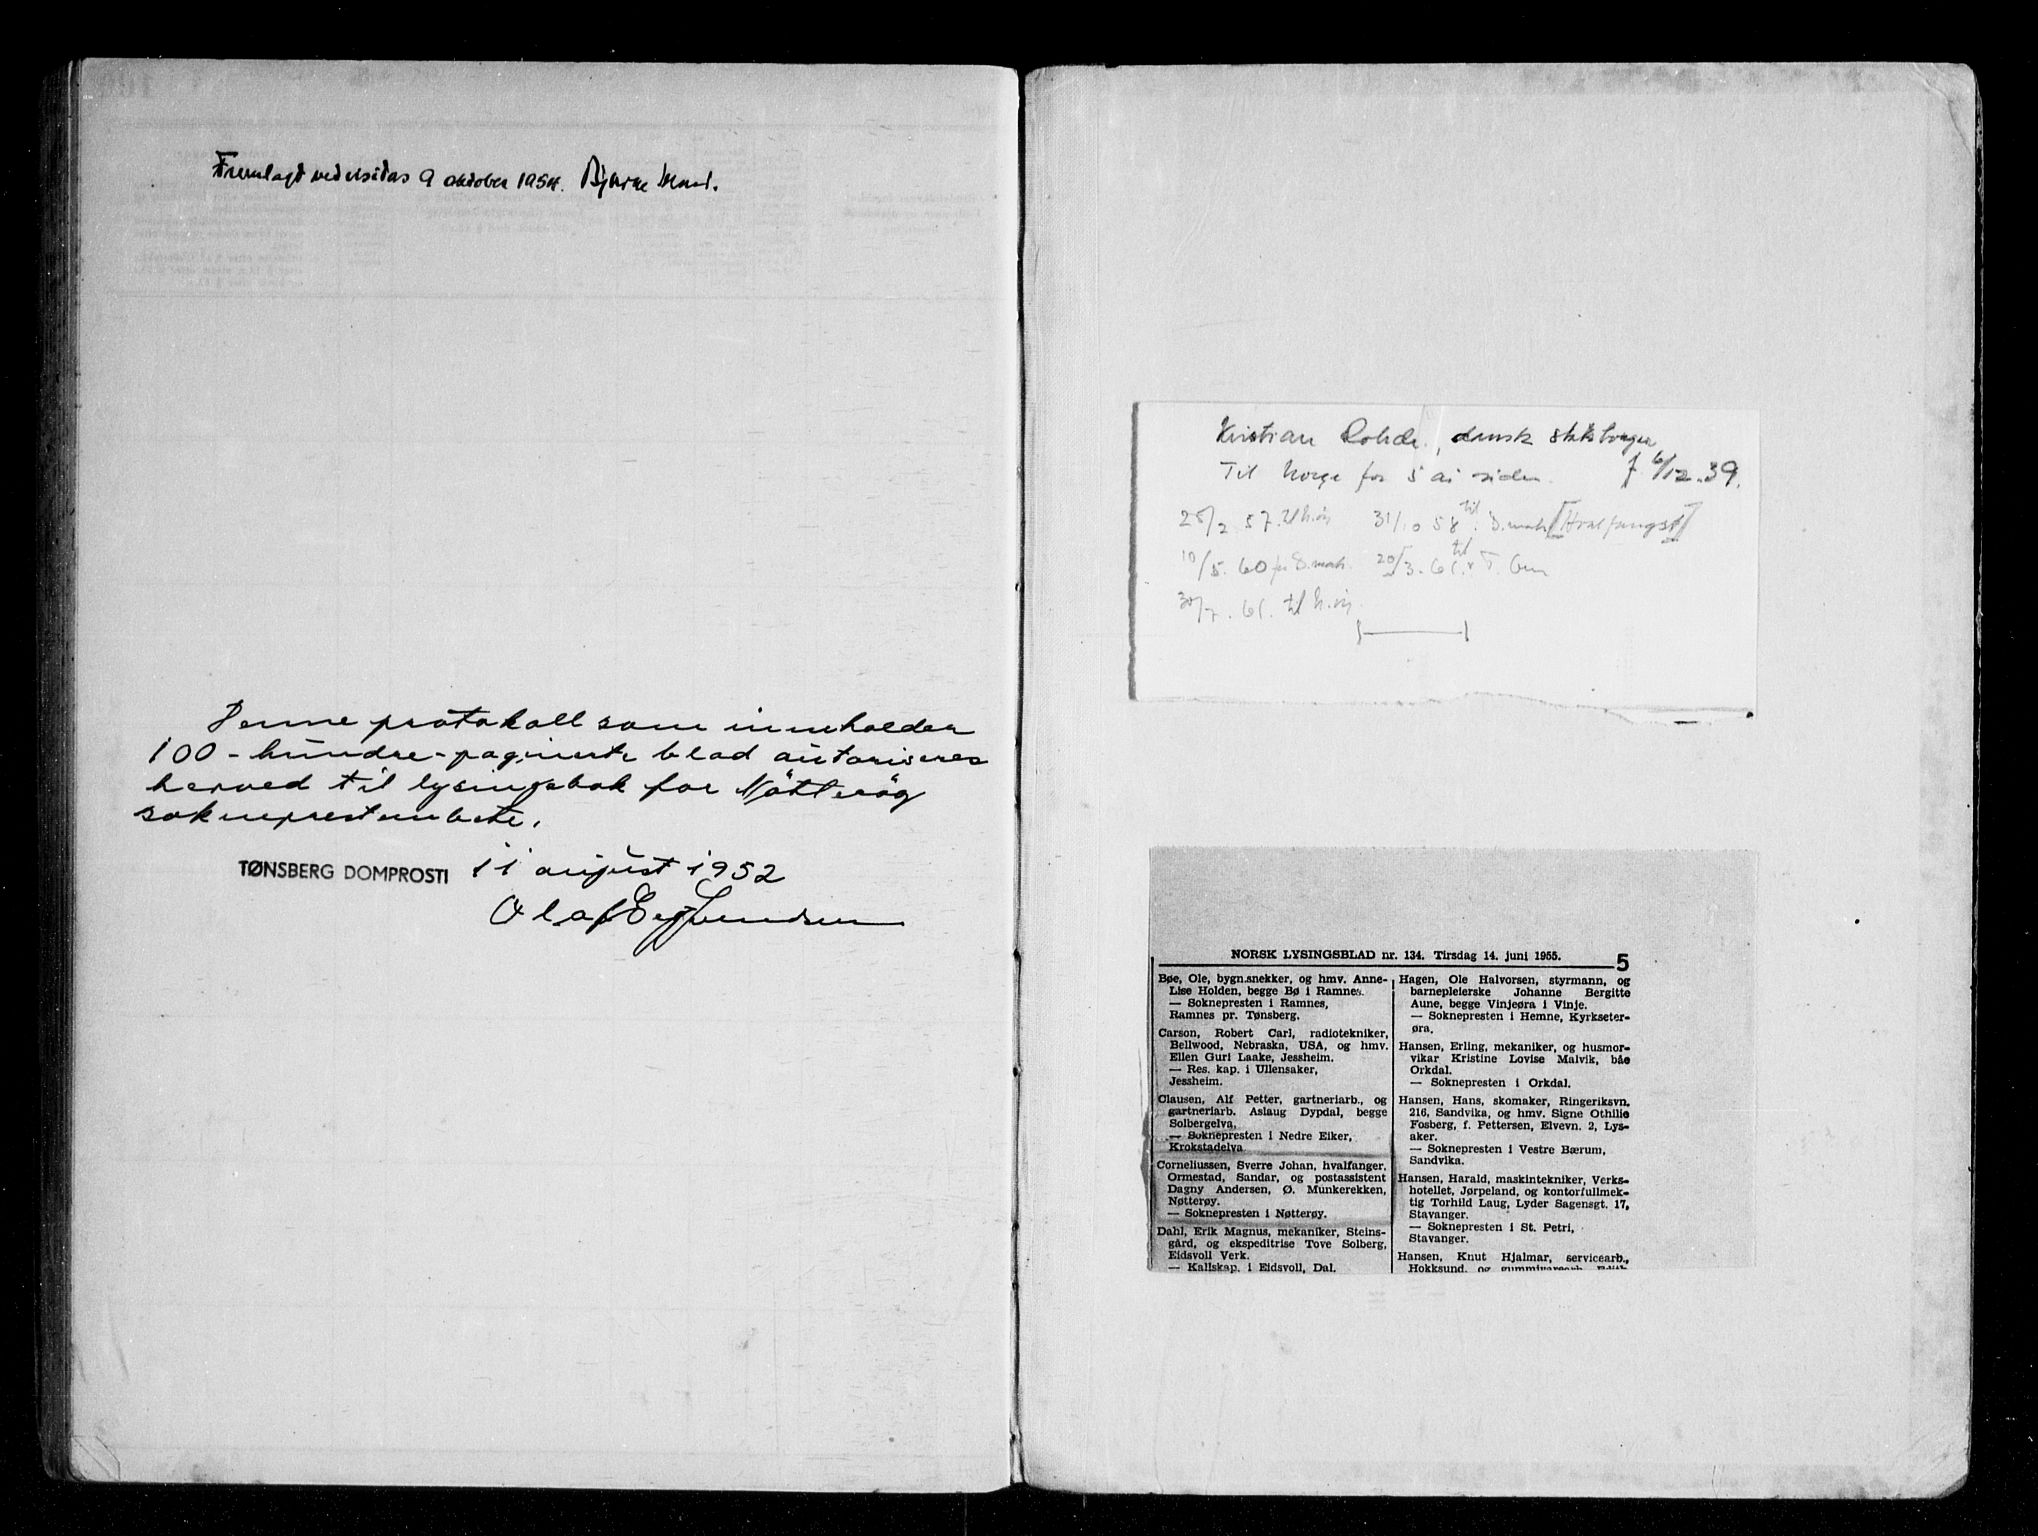 Fremlagt ved visitas 9 oktober 1954. Bjarne
Denne protokoll som inneholder
100 - hundre - paginerte blad autoriseres
herved til lysingsbok for Nötteröy
sokneprestembete.
TØNSBERG DOMPROSTI 11 august 1952
Olaf
Kristian Rohde, dansk statsborger
Til Norge for 5 år siden. f 6/12.39.
25/2 57. til N.øy 31/10 58 til D.mark [Hvalfangst]
10/5. 60 fra D.mark. 20/3. 61. til T.
30/7. 61. til N.øy.
NORSK LYSINGSBLAD nr. 134. Tirsdag 14. juni 1955. 5
Bøe, Ole, bygn.snekker, og hmv. Anne-
Lise Holden, begge Bø i Ramnes.
— Soknepresten i Ramnes,
Ramnes pr. Tønsberg.
Carson, Robert Carl, radiotekniker,
Bellwood, Nebraska, USA, og hmv.
Ellen Guri Laake, Jessheim.
— Res. kap. i Ullensaker,
Jessheim.
Clausen, Alf Petter, gartneriarb., og
gartneriarb. Aslaug Dypdal, begge
Solbergelva.
— Soknepresten i Nedre Eiker,
Krokstadelva
Corneliussen, Sverre Johan, hvalfanger,
Ormestad, Sandar, og postassistent
Dagny Andersen, Ø. Munkerekken,
Nøtterøy.
— Soknepresten i Nøtterøy.
Dahl, Erik Magnus, mekaniker, Steins-
gård, og ekspeditrise Tove Solberg,
Eidsvoll Verk.
— Kallskap. i Eidsvoll, Dal.
Hagen, Ole Halvorsen, styrmann, og
barnepleierske Johanne Bergitte
Aune, begge Vinjeøra i Vinje.
— Soknepresten i Hemne, Kyrkseter-
øra.
Hansen, Erling, mekaniker, og husmor-
vikar Kristine Lovise Malvik, båe
Orkdal.
— Soknepresten i Orkdal.
Hansen, Hans, skomaker, Ringeriksvn.
216, Sandvika, og hmv. Signe Othilie
Fosberg, f. Pettersen, Elvevn. 2, Lys-
aker.
— Soknepresten i Vestre Bærum,
Sandvika.
Hansen, Harald, maskintekniker, Verks-
hotellet, Jørpeland, og kontorfullmek-
tig Torhild Laug, Lyder Sagensgt. 17,
Stavanger.
— Soknepresten i St. Petri,
Stavanger.
Hansen, Knut Hjalmar, servicearb.,
Hokksund, og